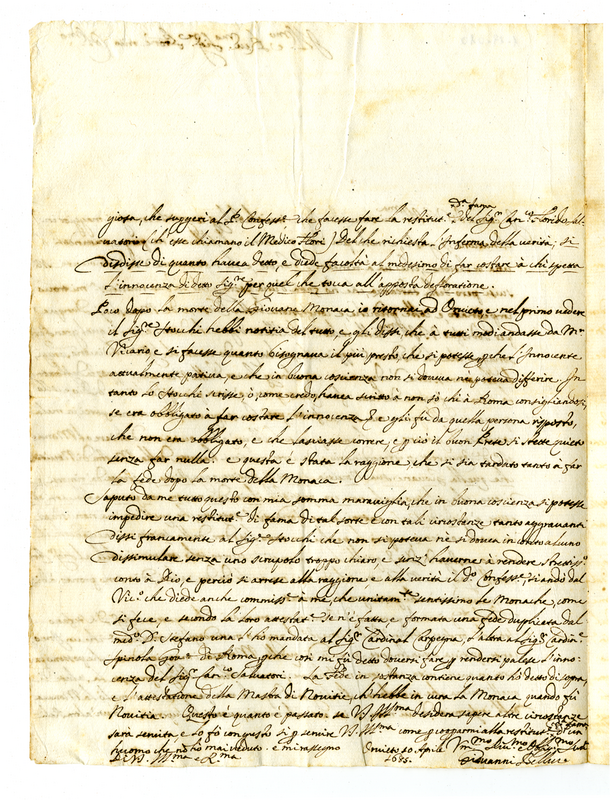 giosa, che suggerì al Pre Confessre che facesse fare la restitutne di fama del Sigr Canco Florido Sal-
uatori (ch'esse chiamano il Medico Flori) Del che richiesta l'Inferma della verità, si
disdisse di quanto havea detto, e diede facoltà al medesimo di far costare à chi spetta
l'innocenza di detto Sigre per quel che tocca all'apposta defloratione.
Poco dopo la morte della Giovane Monaca io ritornai ad Orvieto, e nel primo vedere
il Sigre Stocchi hebbi notitia del tutto, e gli dissi che, à tutti mediandasse da Mr
Vicario e si facesse quanto bisognava il più presto che si potesse, perche l'Innocente
attualmente pativa, e che in buona coscienza non si doveva, ne poteva differire. In
tanto lo Stocchi scrisse, ò, come credo, havea scritto à non sò chi à Roma consigliandosi,
se era obbligato à far costare l'innocenza &c e gli fù da quella persona risposto,
che non era obbligato, e che lasciasse correre, e perciò il buon Prete si stette quieto
senza far nulla: e questa è stata la raggione, che si sia tardato tanto à far
la fede dopo la morte della Monaca.
Saputo da me tutto questo con mia somma maraviglia, che in buona coscienza si potesse
impedire una restitutne di fama di tal sorte e con tali circostanze tanto aggravanti
dissi francamente al Sigre Stocchi che non si poteva ne si dovea in conto alcuno
dissimulare senza uno scrupolo troppo chiaro, e senza haverne à rendere strettissmo
conto à Dio, e perciò si arrese alla raggione e alla verità il do Confessre, si andò dal
Vico che diede anche commissne à me, che unitamte sentissimo le Monache, come
si fece, e secondo la loro attestatne se n'è fatta, e formata una fede duplicata dal
medmo D. Stefano una l'ho mandata al Sigr Cardinal Carpegna, e l'altra al Sigr Cardinle
Spinola Govre di Roma, perche così mi fù detto doversi fare, per rendersi palese l'inno-
cenza del Sigr Canco Salvatori. La Fede in sostanza contiene quanto hò detto di sopra,
e l'attestatione della Mastra di Novitie, ch'hebbe in cura la Monaca quando fù
Novitia. Questo è quanto è passato, se V.S. Illma desidera sapere altre circostanze
sarà servita, e lo fò con questo sì per servire V.S. Illma come per cooperarmi alla restitutne di fama d'un
huomo che nò hò mai veduto. e mi rassegno Orvieto 30. Aprile
Di V.S. Illma e Rma 1685. Giovanni Bellucci